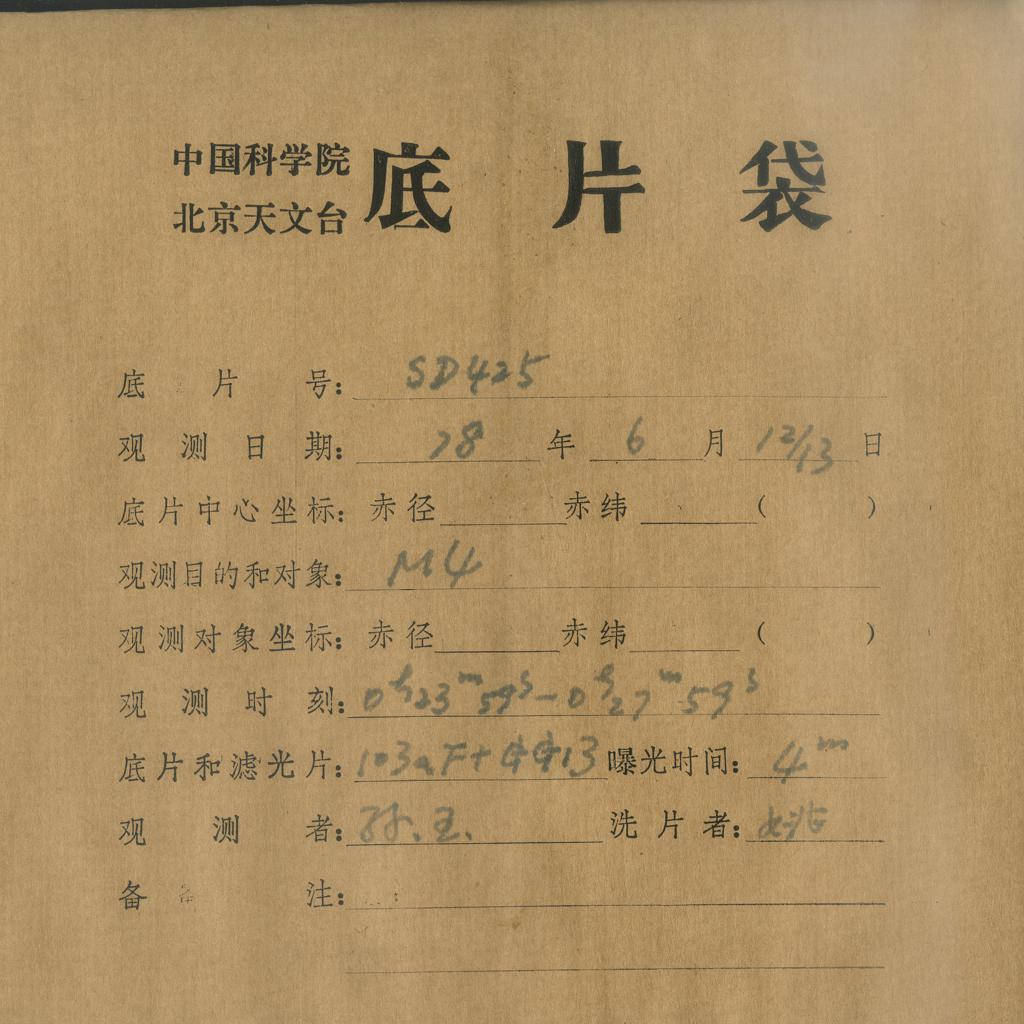 中国科学院
北京天文台
底片袋
底片号: SD425
观测日期: 78年 6月 12/13日
底片中心坐标: 赤径 赤纬 ( )
观测目的和对象: M4
观测对象坐标: 赤径 赤纬 ( )
观测时刻: 0h23m59s-0h27m59s
底片和滤光片: 103aF+ 13 曝光时间: 4m
观测者: 孙、王、 洗片者:
备注: